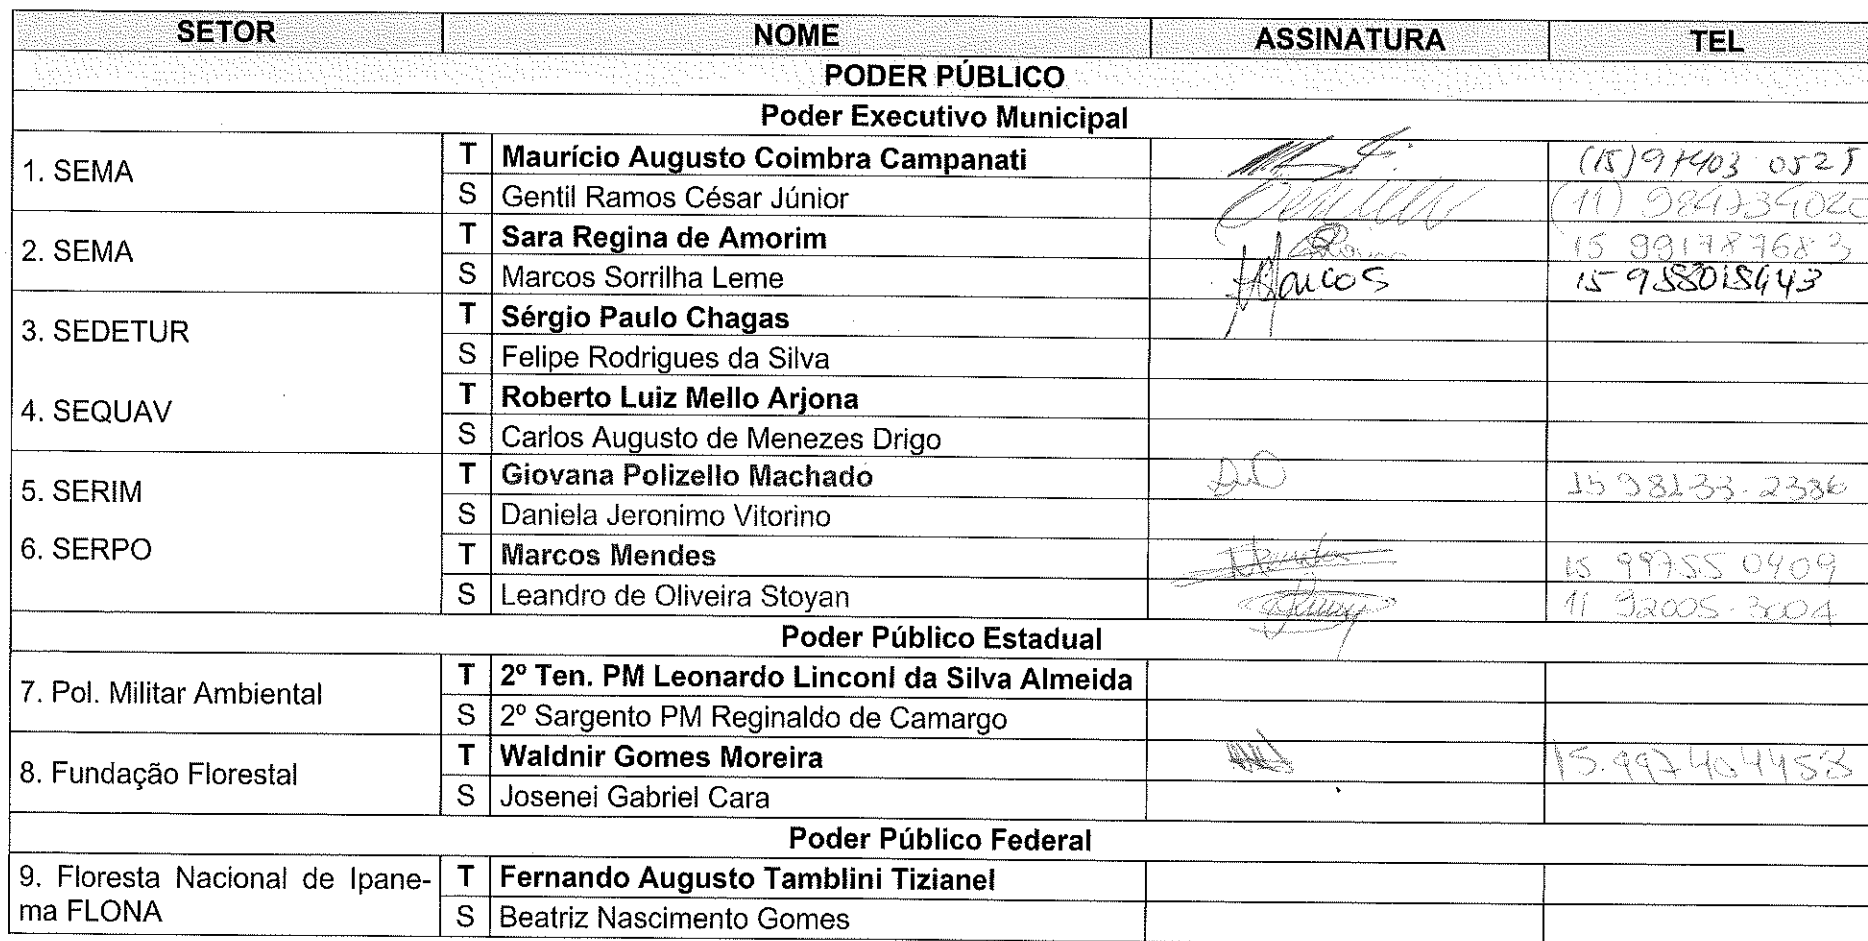 SETOR NOME ASSINATURA TEL
PODER PÚBLICO
Poder Executivo Municipal
1. SEMA T Maurício Augusto Coimbra Campanati (15) 97403 0525
S Gentil Ramos César Júnior (11)
2. SEMA T Sara Regina de Amorim 15 991787683
S Marcos Sorrilha Leme Marcos 15
3. SEDETUR T Sérgio Paulo Chagas
S Felipe Rodrigues da Silva
4. SEQUAV T Roberto Luiz Mello Arjona
S Carlos Augusto de Menezes Drigo
5. SERIM T Giovana Polizello Machado 15 98133-2386
S Daniela Jeronimo Vitorino
6. SERPO T Marcos Mendes 15 99755 0409
S Leandro de Oliveira Stoyan 11 92005-3004
Poder Público Estadual
7. Pol. Militar Ambiental T 2º Ten. PM Leonardo Linconl da Silva Almeida
S 2º Sargento PM Reginaldo de Camargo
8. Fundação Florestal T Waldnir Gomes Moreira 15.997404458
S Josenei Gabriel Cara
Poder Público Federal
9. Floresta Nacional de Ipane- T Fernando Augusto Tamblini Tizianel
ma FLONA S Beatriz Nascimento Gomes